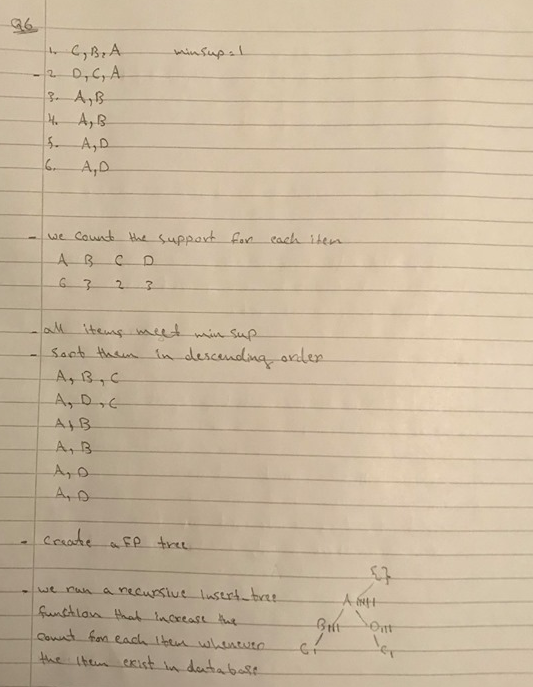 Q6
1. C, B, A minsup=1
- 2. D, C, A
3. A, B
4. A, B
5. A, D
6. A, D
- we count the support for each item
A B C D
6 3 2 3
- all items meet min sup
- sort them in descending order
A, B, C
A, D, C
A, B
A, B
A, D
A, D
- Create a FP tree
{}
- we run a recursive insert_tree
A
function that increase the
count for each item whenever
B D
the item exist in database
C C